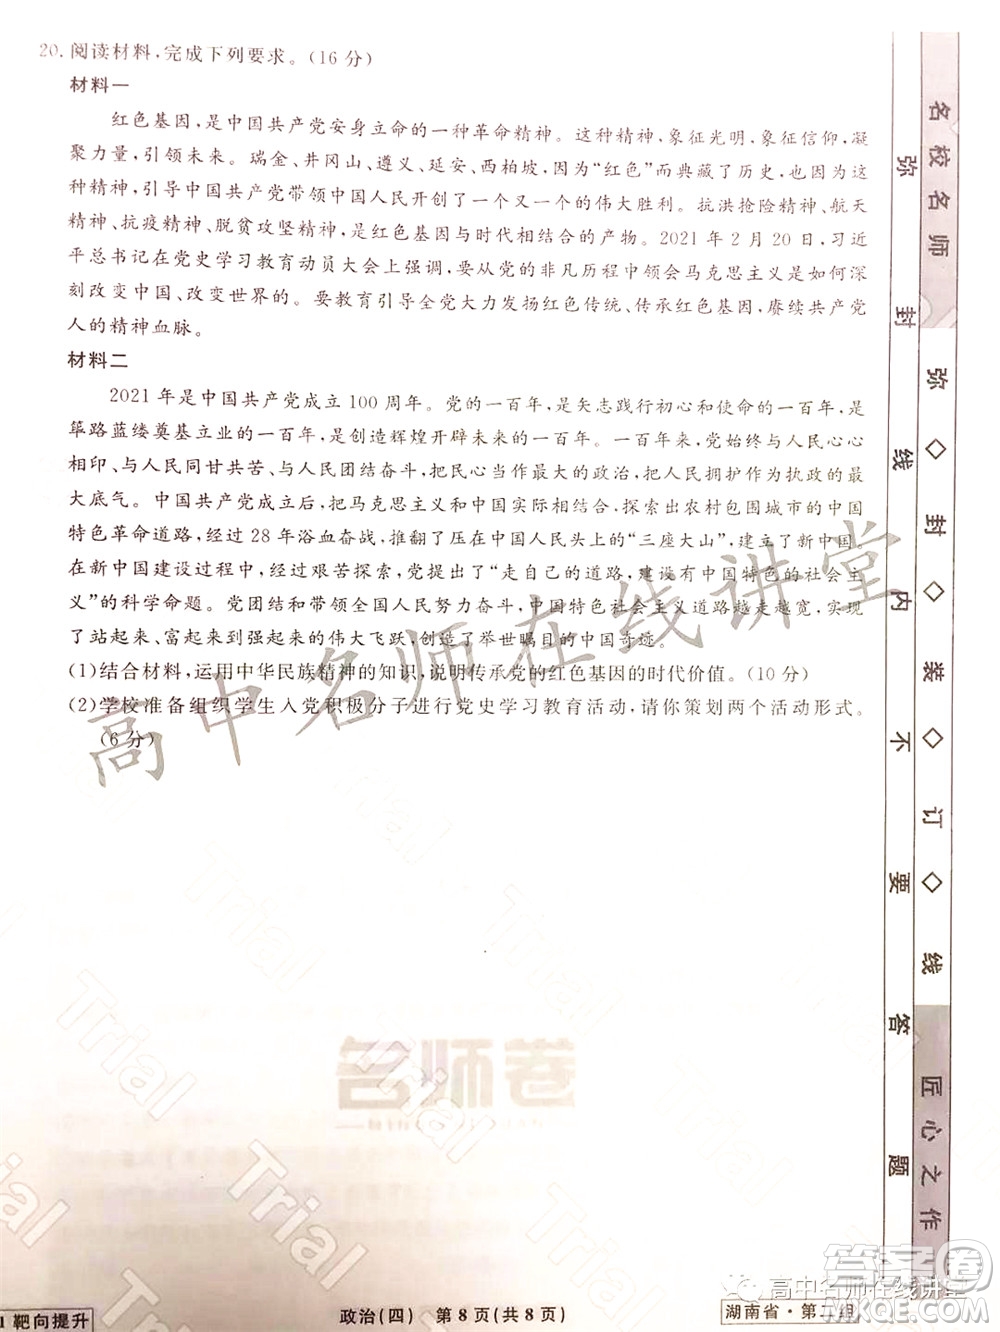 20. 阅读材料,完成下列要求。(16 分)
材料一
红色基因,是中国共产党安身立命的一种革命精神。这种精神,象征光明,象征信仰,凝
聚力量,引领未来。瑞金、井冈山、遵义、延安、西柏坡,因为“红色”而典藏了历史,也因为
这种精神,引导中国共产党带领中国人民开创了一个又一个的伟大胜利。抗洪抢险精神、航天
精神、抗疫精神、脱贫攻坚精神,是红色基因与时代相结合的产物。2021 年 2 月 20 日,习近
平总书记在党史学习教育动员大会上强调,要从党的非凡历程中领会马克思主义是如何深
刻改变中国、改变世界的。要教育引导全党大力发扬红色传统、传承红色基因,赓续共产党
人的精神血脉。
材料二
2021 年是中国共产党成立 100 周年。党的一百年,是矢志践行初心和使命的一百年,是
筚路蓝缕奠基立业的一百年,是创造辉煌开辟未来的一百年。一百年来,党始终与人民心心
相印、与人民同甘共苦、与人民团结奋斗,把民心当作最大的政治,把人民拥护作为执政的最
大底气。中国共产党成立后,把马克思主义和中国实际相结合,探索出农村包围城市的中国
特色革命道路,经过 28 年浴血奋战,推翻了压在中国人民头上的“三座大山”,建立了新中国。
在新中国建设过程中,经过艰苦探索,提出了“走自己的道路,建设有中国特色的社会主
义”的科学命题。党团结和带领全国人民努力奋斗,中国特色社会主义道路越走越宽,实现
了站起来、富起来到强起来的伟大飞跃,创造了举世瞩目的中国奇迹。
(1)结合材料,运用中华民族精神的知识,说明传承党的红色基因的时代价值。(10 分)
(2)学校准备组织学生入党积极分子进行党史学习教育活动,请你策划两个活动形式。
(6 分)
高中名师在线讲堂
名师卷
Trial
Trial
Trial
Trial
Trial
Trial
Trial
Trial
名校名师
弥◇封◇装◇订◇线
匠心之作
弥封线内不要答题
答案圈
MXQE.COM
高中名师在线讲堂
1 靶向提升
政治(四) 第 8 页(共 8 页)
湖南省·第二组